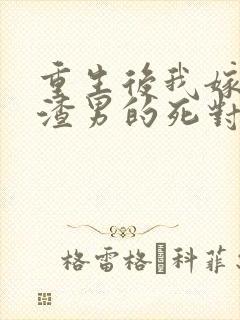 重生後我嫁
渣男的死對
格雷格 科菲